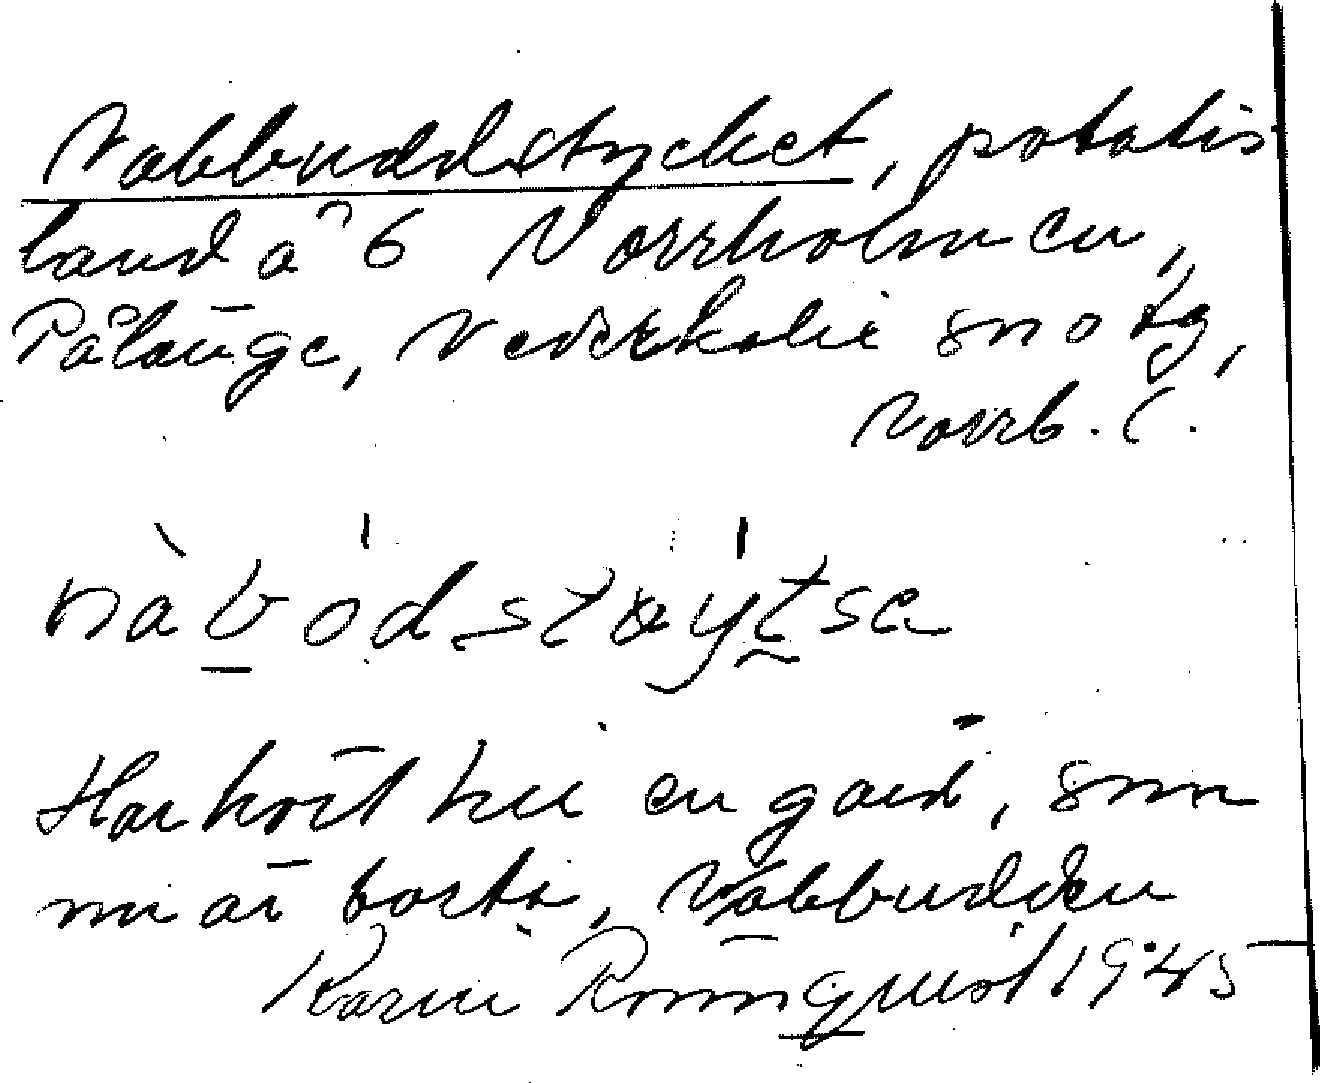 Nabbuddstycket, potatis
land å ö Norrholmen,
Pålänge, Nederkalix sn o tg,
Norrb. l.
Har hört till en gård, som
nu är borta, Nabbudden
Karin Rönnquist 1945